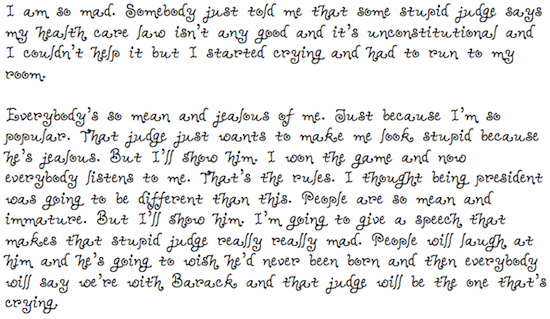 I am so mad. Somebody just told me that some stupid judge says
my health care law isn't any good and it's unconstitutional and
I couldn't help it but I started crying and had to run to my
room.

Everybody's so mean and jealous of me. Just because I'm so
popular. That judge just wants to make me look stupid because
he's jealous. But I'll show him. I won the game and now
everybody listens to me. That's the rules. I thought being president
was going to be different than this. People are so mean and
immature. But I'll show him. I'm going to give a speech that
makes that stupid judge really really mad. People will laugh at
him and he's going to wish he'd never been born and then everybody
will say we're with Barack and that judge will be the one that's
crying